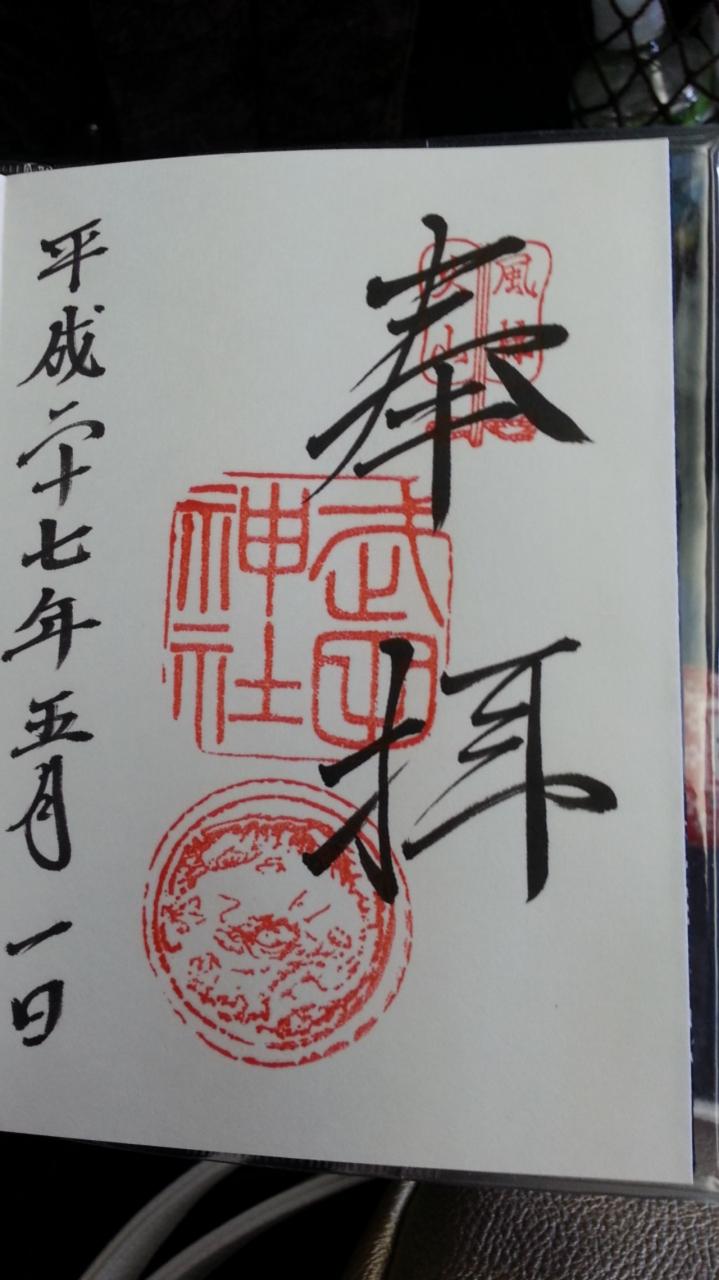 奉拝
風林
火山
武田
神社
平成二十七年五月一日